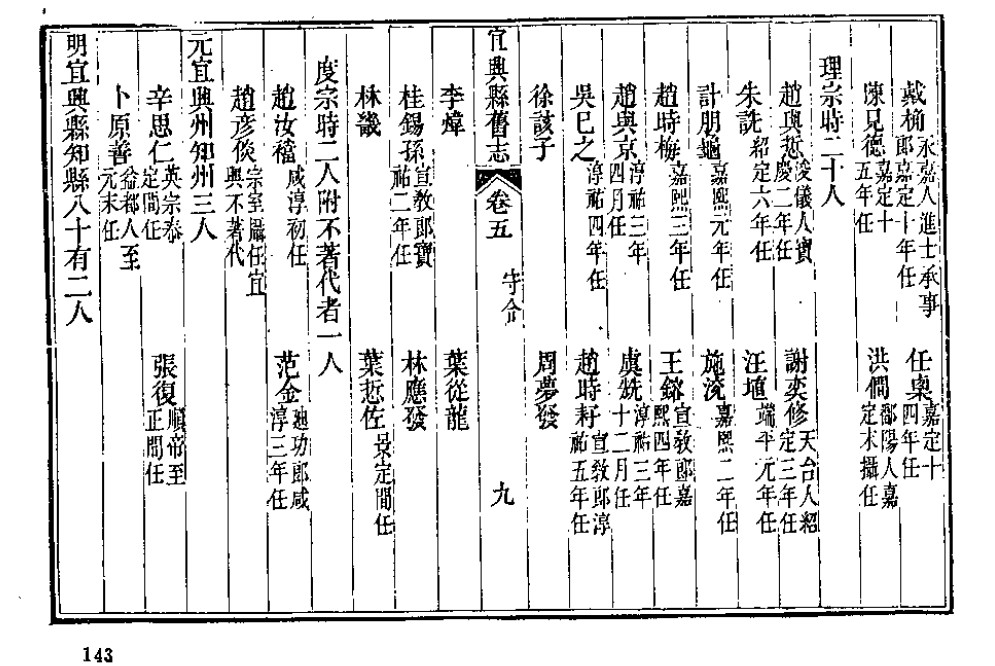 戴桷 永嘉人進士承事郎嘉定十年任 任㮚 嘉定十四年任
陳見德 嘉定十五年任 洪僴 鄱陽人嘉定末攝任
理宗時二十人
趙與悊 浚儀人寶慶二年任 謝奕修 天台人紹定三年任
朱詵 紹定六年任 汪埴 端平元年任
計朋龜 嘉熙元年任 施洸 嘉熙二年任
趙時 嘉熙三年任 王鎔 宣敎郎嘉熙四年任
趙與京 淳祐三年四月任 虞兟 淳祐三年十二月任
吳巳之 淳祐四年任 趙時 宣敎郎淳祐五年任
徐該子 周夢發
宜興縣舊志 卷五 守令 九
李煒 葉從龍
桂錫孫 宣敎郎寶祐二年任 林應發
林畿 葉悊佐 景定間任
度宗時二人附不著代者一人
趙汝 咸淳初任 范金 廸功郎咸淳三年任
趙彥倓 宗室屬任宜興不著代
元宜興州知州三人
辛思仁 英宗泰定間任 張復 順帝至正間任
卜原善 益都人至元末任
明宜興縣知縣八十有二人
143